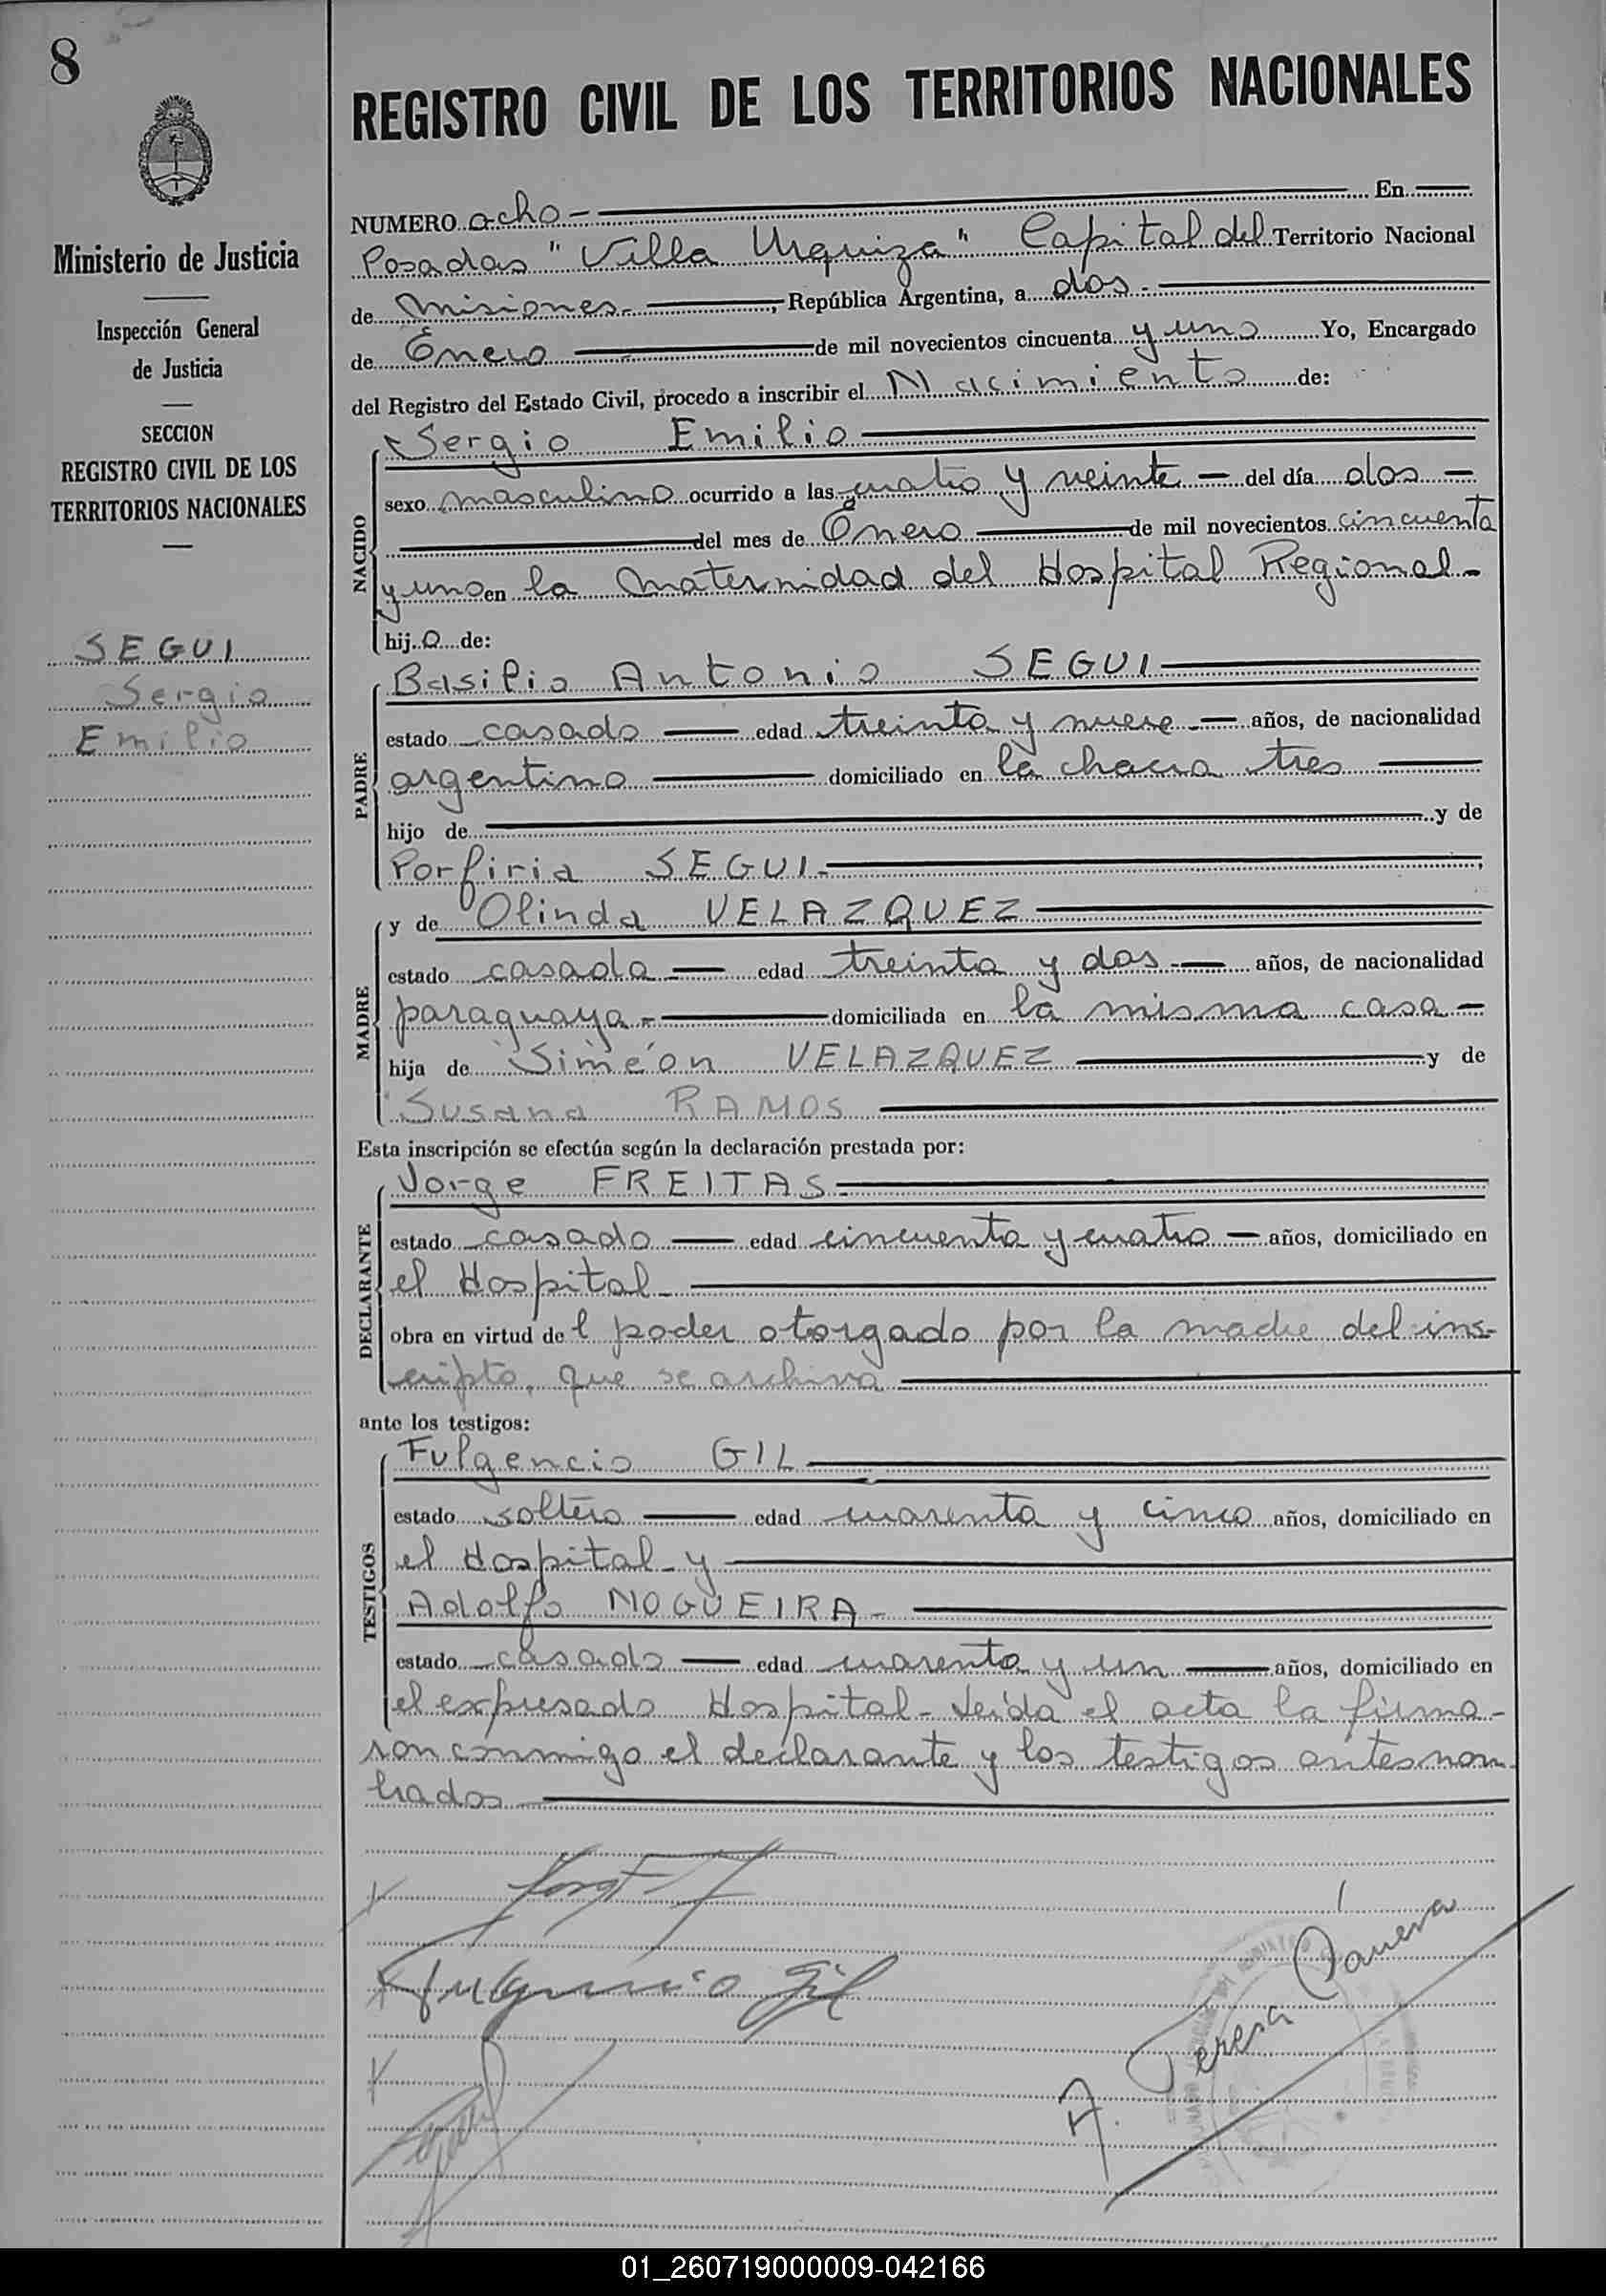 8
REGISTRO CIVIL DE LOS TERRITORIOS NACIONALES
Ministerio de Justicia
Inspección General
de Justicia
SECCION
REGISTRO CIVIL DE LOS
TERRITORIOS NACIONALES
SEGUI
Sergio
Emilio
NUMERO ocho - En
Posadas "Villa Urquiza" Capital del Territorio Nacional
de Misiones.-, República Argentina, a dos.-
de Enero de mil novecientos cincuenta y uno Yo, Encargado
del Registro del Estado Civil, procedo a inscribir el Nacimiento de:
NACIDO
Sergio Emilio
sexo masculino ocurrido a las cuatro y veinte — del día dos —
del mes de Enero de mil novecientos cincuenta
y uno en la Maternidad del Hospital Regional.-
hijo de:
PADRE
Basilio Antonio SEGUI
estado casado — edad treinta y nueve — años, de nacionalidad
argentino domiciliado en la chacra tres
hijo de y de
Porfiria SEGUI.-
MADRE
y de Olinda VELAZQUEZ
estado casada — edad treinta y dos.- años, de nacionalidad
paraguaya.- domiciliada en la misma casa -
hija de Simeón VELAZQUEZ y de
Susana RAMOS
Esta inscripción se efectúa según la declaración prestada por:
DECLARANTE
Jorge FREITAS.-
estado casado — edad cincuenta y cuatro — años, domiciliado en
el Hospital.-
obra en virtud del poder otorgado por la madre del ins-
cripto, que se archiva
ante los testigos:
TESTIGOS
Fulgencio GIL
estado soltero — edad cuarenta y cinco años, domiciliado en
el Hospital - y
Adolfo NOGUEIRA -
estado casado — edad cuarenta y un — años, domiciliado en
el expresado Hospital - Leída el acta la firma-
ron conmigo el declarante y los testigos antes nom
brados
Fulgencio Gil
A. Teresa
01_260719000009-042166